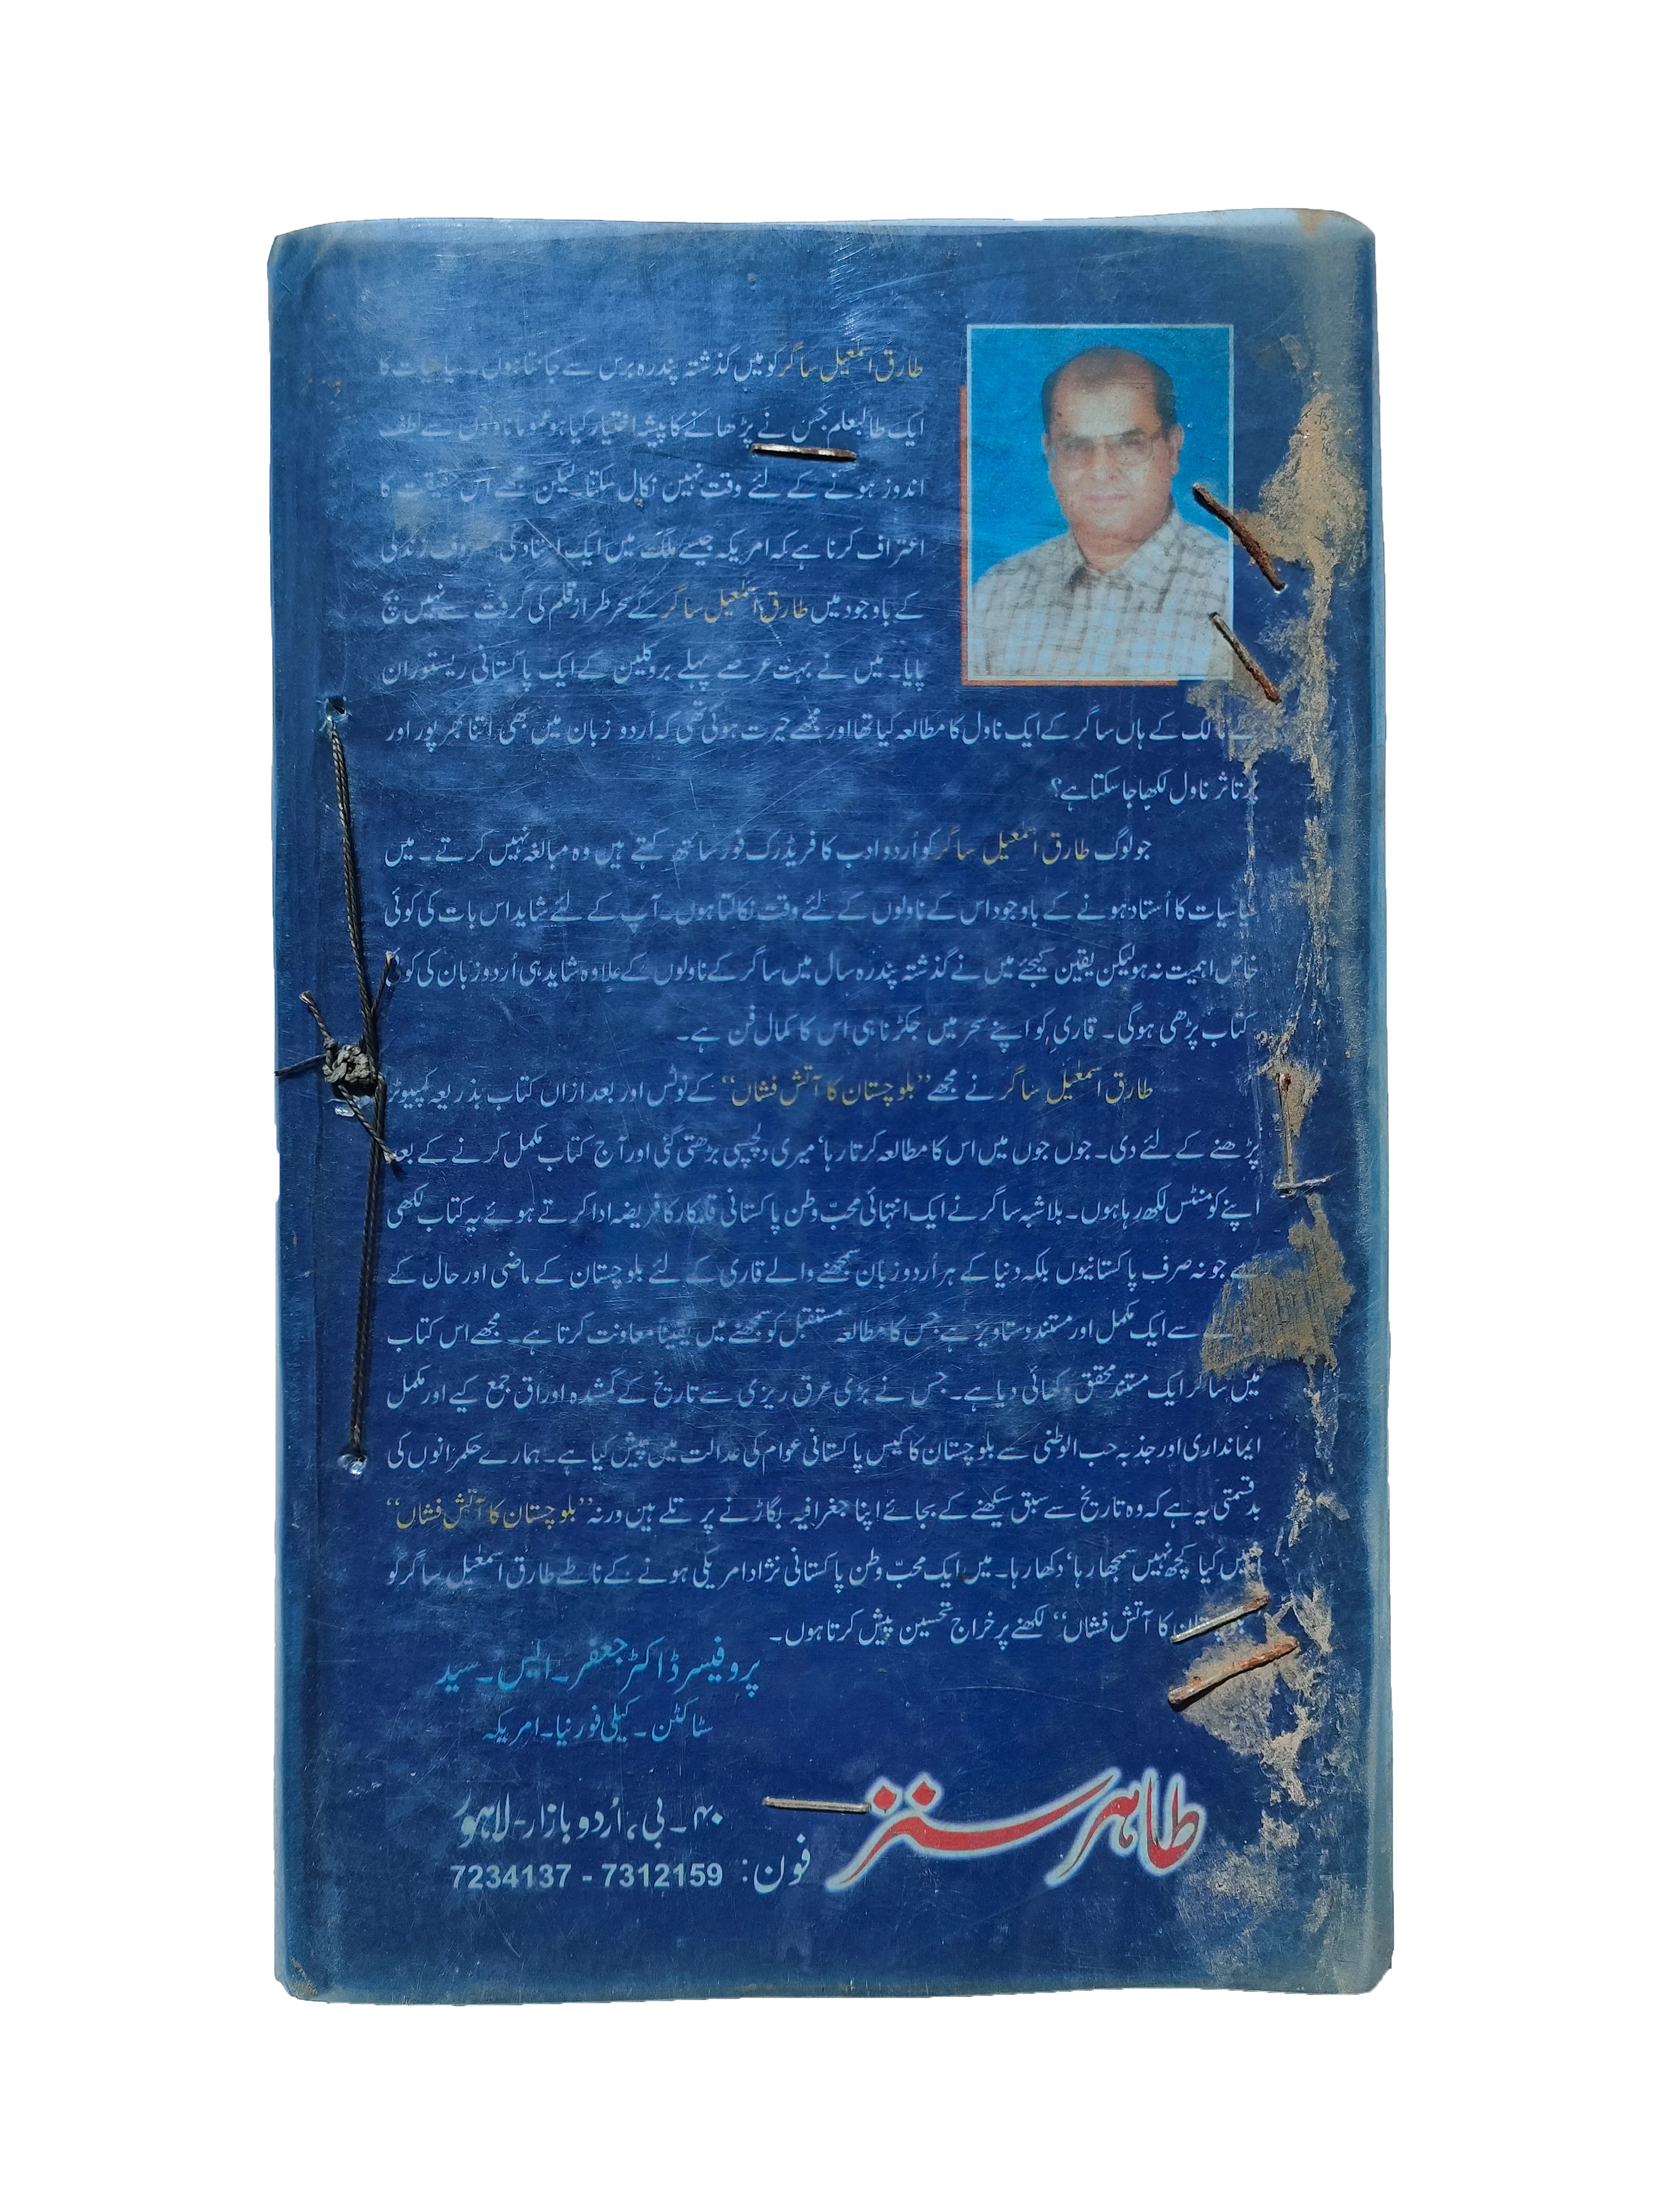 طارق اسمٰعیل ساگر کو میں گذشتہ پندرہ برس سے جانتا ہوں۔ سیاسیات کا
ایک طالبعلم جس نے پڑھانے کا پیشہ اختیار کیا ہو عموماً ناولوں سے لطف
اندوز ہونے کے لئے وقت نہیں نکال سکتا لیکن مجھے اس حقیقت کا
اعتراف کرنا ہے کہ امریکہ جیسے ملک میں ایک استاد کی مصروف زندگی
کے باوجود میں طارق اسمٰعیل ساگر کے سحر طراز قلم کی گرفت سے نہیں بچ
پایا۔ میں نے بہت عرصے پہلے بروکلین کے ایک پاکستانی ریستوران
کے مالک کے ہاں ساگر کے ایک ناول کا مطالعہ کیا تھا اور مجھے حیرت ہوئی تھی کہ اُردو زبان میں بھی اتنا بھرپور اور
پُرتاثر ناول لکھا جا سکتا ہے؟
جو لوگ طارق اسمٰعیل ساگر کو اُردو ادب کا فریڈرک فورسائتھ کہتے ہیں وہ مبالغہ نہیں کرتے۔ میں
سیاسیات کا اُستاد ہونے کے باوجود اس کے ناولوں کے لئے وقت نکالتا ہوں۔ آپ کے لئے شاید اس بات کی کوئی
خاص اہمیت نہ ہو لیکن یقین کیجئے میں نے گذشتہ پندرہ سال میں ساگر کے ناولوں کے علاوہ شاید ہی اُردو زبان کی کوئی
کتاب پڑھی ہوگی۔ قاری کو اپنے سحر میں جکڑنا ہی اس کا کمال فن ہے۔
طارق اسمٰعیل ساگر نے مجھے ”بلوچستان کا آتش فشاں“ کے نوٹس اور بعد ازاں کتاب بذریعہ کمپیوٹر
پڑھنے کے لئے دی۔ جوں جوں میں اس کا مطالعہ کرتا رہا‘ میری دلچسپی بڑھتی گئی اور آج کتاب مکمل کرنے کے بعد
اپنے کومنٹس لکھ رہا ہوں۔ بلاشبہ ساگر نے ایک انتہائی محبّ وطن پاکستانی قلمکار کا فریضہ ادا کرتے ہوئے یہ کتاب لکھی
ہے جو نہ صرف پاکستانیوں بلکہ دنیا کے ہر اُردو زبان سمجھنے والے قاری کے لئے بلوچستان کے ماضی اور حال کے
سے ایک مکمل اور مستند دستاویز ہے جس کا مطالعہ مستقبل کو سمجھنے میں یقیناً معاونت کرتا ہے۔ مجھے اس کتاب
میں ساگر ایک مستند محقق دکھائی دیا ہے۔ جس نے بڑی عرق ریزی سے تاریخ کے گمشدہ اوراق جمع کیے اور مکمل
ایمانداری اور جذبہ حب الوطنی سے بلوچستان کا کیس پاکستانی عوام کی عدالت میں پیش کیا ہے۔ ہمارے حکمرانوں کی
بدقسمتی یہ ہے کہ وہ تاریخ سے سبق سیکھنے کے بجائے اپنا جغرافیہ بگاڑنے پر تلے ہیں ورنہ ”بلوچستان کا آتش فشاں“
انہیں کیا کچھ نہیں سمجھا رہا‘ دکھا رہا۔ میں ایک محبّ وطن پاکستانی نژاد امریکی ہونے کے ناطے طارق اسمٰعیل ساگر کو
کا آتش فشاں“ لکھنے پر خراج تحسین پیش کرتا ہوں۔
پروفیسر ڈاکٹر جعفر۔ ایس۔ سید
سٹاکٹن۔ کیلی فورنیا۔ امریکہ
طاہر سنز
۴۰۔ بی، اُردو بازار۔ لاہور
فون: 7312159 - 7234137